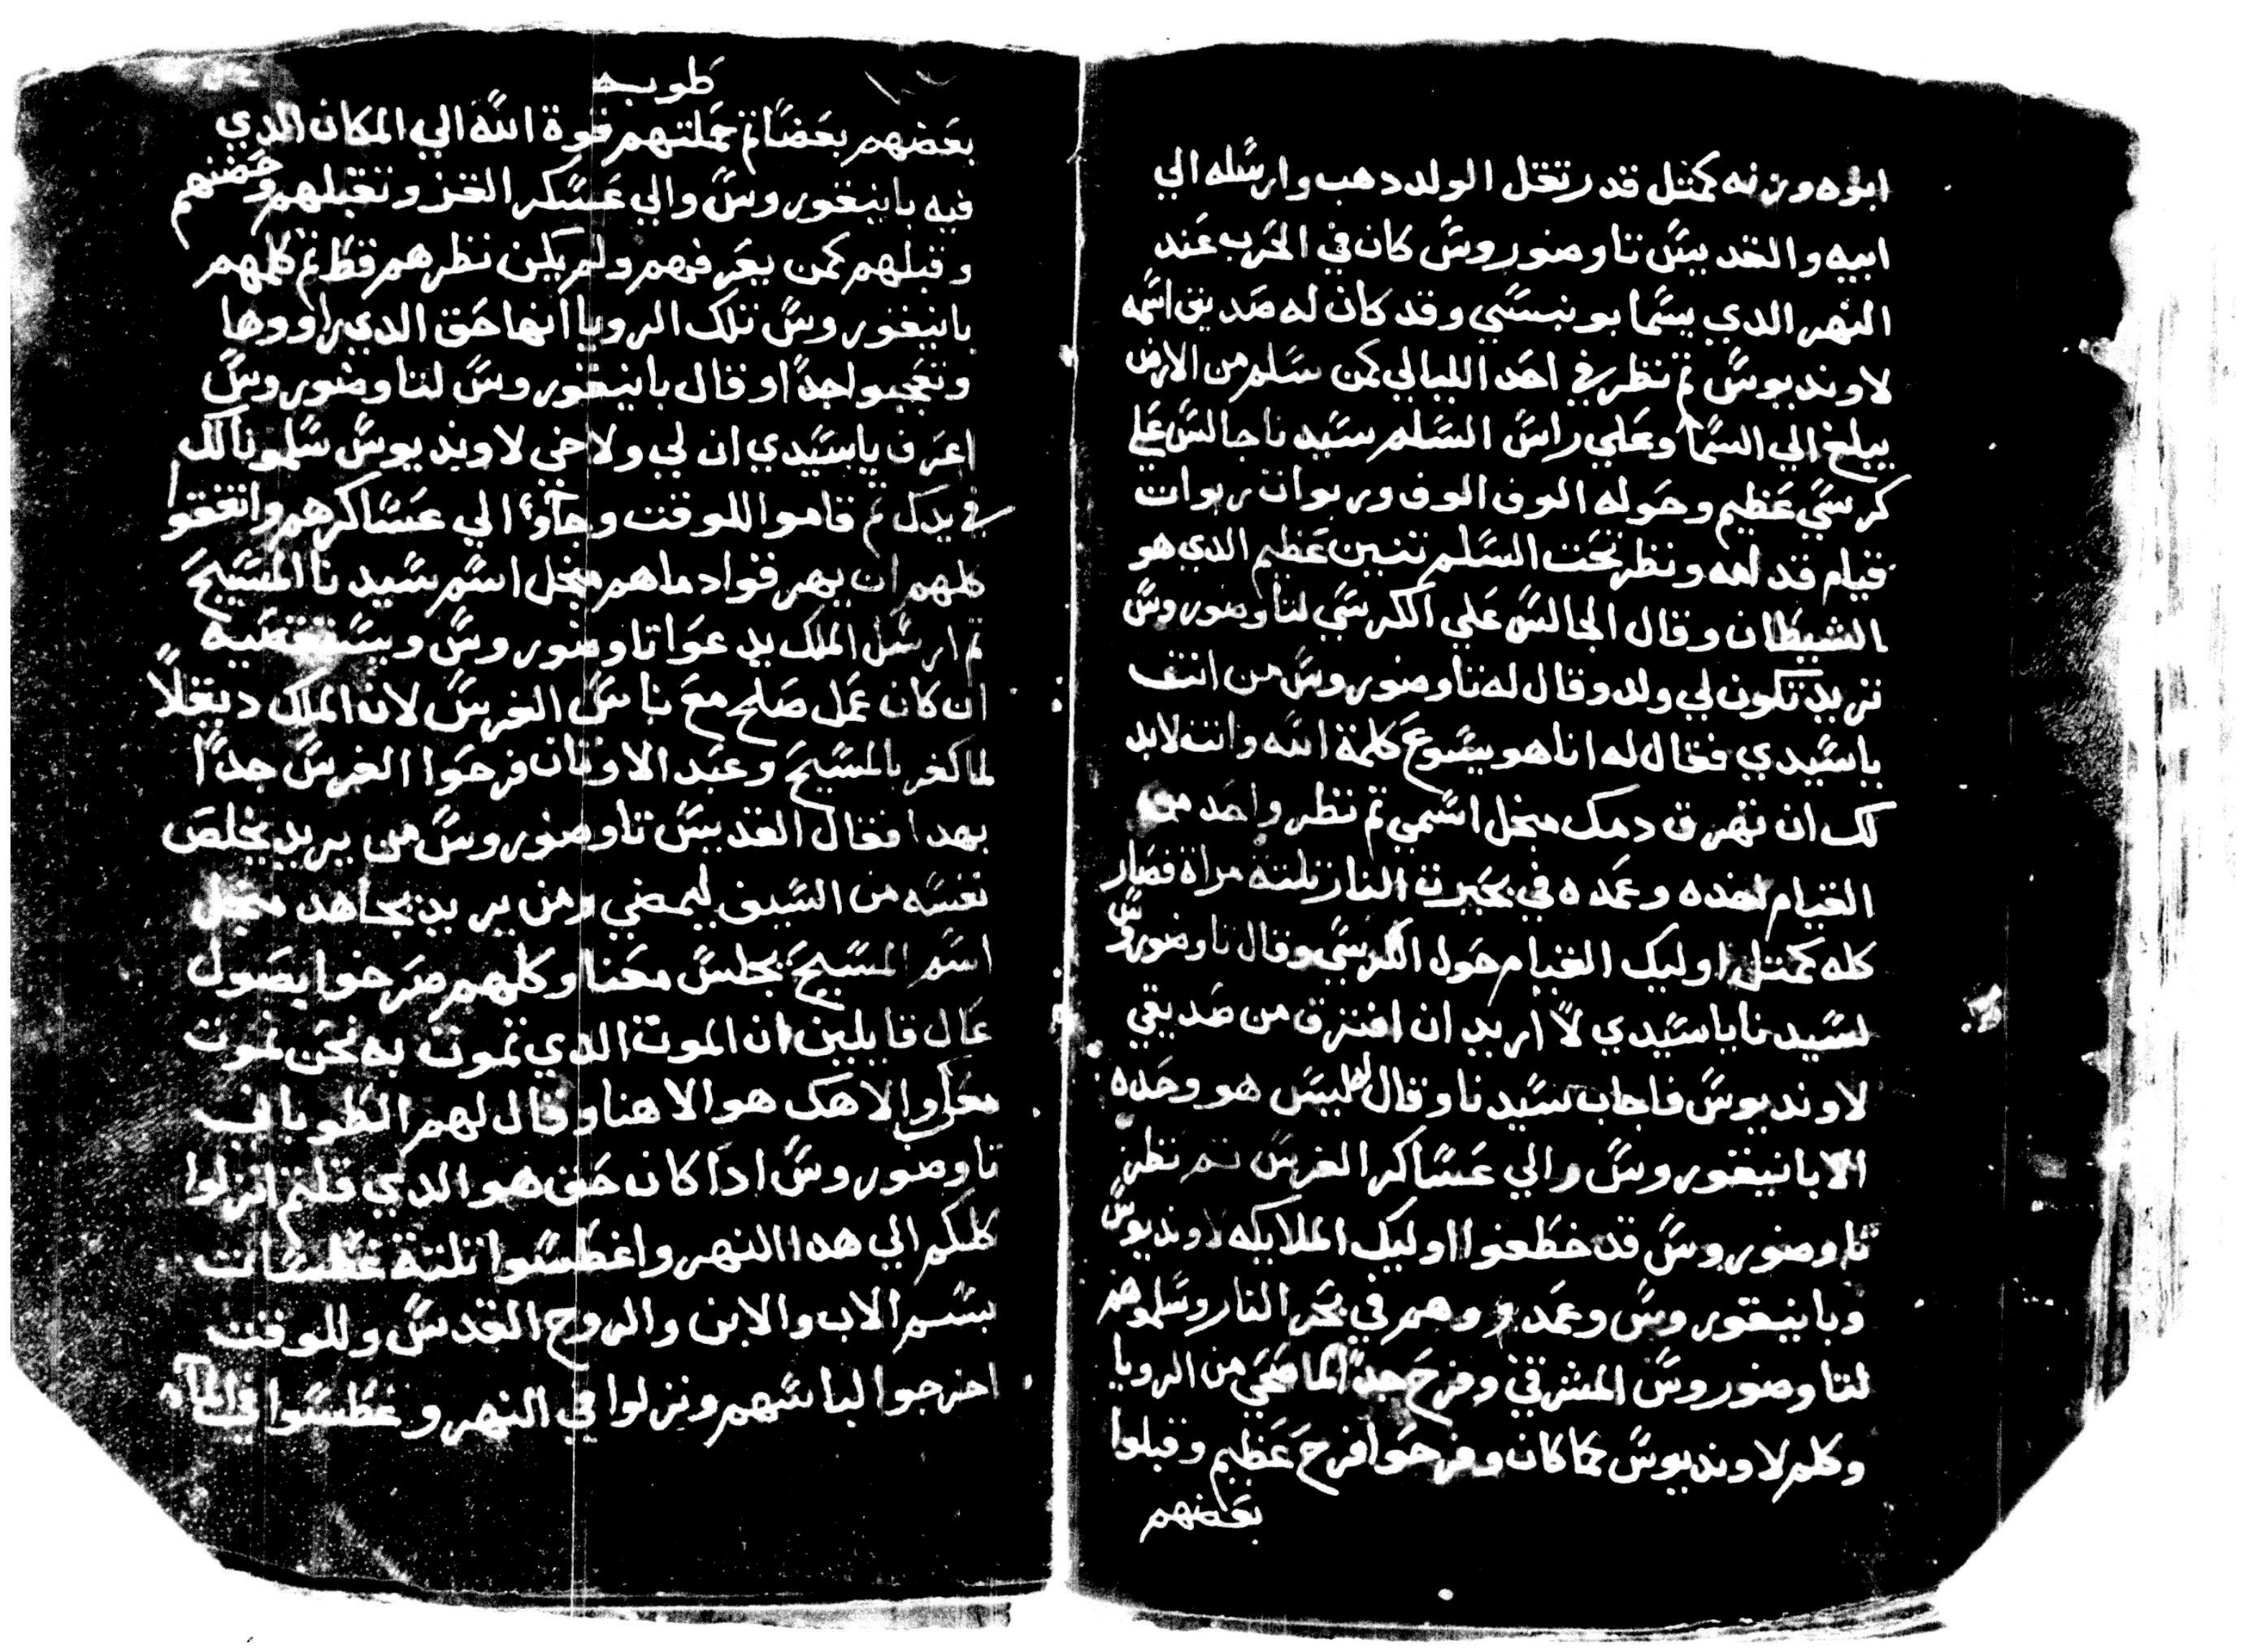 ابوه وزنه كمتل قدر تقل الولد دهب وارسله الي
ابيه والقديس تاوضوروس كان في الحرب عند
النهر الدي يسما بونبسي وقد كان له صديق اسمه
لاونديوس تم نظر في احد الليالي كمن سلم من الارض
يبلغ الي السما وعلي راس السلم سيدنا جالس علي
كرسي عظيم وحوله الوف الوف وربوات ربوات
قيام قدامه ونظر تحت السلم تنين عظيم الدي هو
الشيطان وقال الجالس علي الكرسي لتاوضوروس
تريد تكون لي ولد وقال له تاوضوروس من انت
ياسيدي فقال له انا هو يسوع كلمة الله وانت لابد
لك ان تهرق دمك منجل اسمي تم نظر واحد من
القيام اخده وعمده في بحيرت النار تلتة مراة فصار
كله كمتل اوليك القيام حول الكرسي وقال تاوضوروس
لسيدنا ياسيدي لا اريد ان افترق من صديقي
لاونديوس فاجاب سيدنا وقال له ليس هو وحده
الا بانيقوروس والي عساكر الفرس تم نظر
تاوضوروس قد خطفوا اوليك الملايكه لاونديوس
وبانيقوروس وعمدووهم في بحر النار وسلموهم
لتاوضوروس المشرقي وفرح جدا لما صحي من الرويا
وكلم لاونديوس بما كان وفرحوا فرح عظيم وقبلوا
بعضهم
طوبه
بعضهم بعضا تم حملتهم قوة الله الي المكان الدي
فيه بانيقوروس والي عسكر الفرس وتقبلهم وحضنهم
وقبلهم كمن يعرفهم ولم يكن نظرهم قط تم كلمهم
بانيقوروس تلك الرويا انها حق الدي راووها
وتعجبوا جدا وقال بانيقوروس لتاوضوروس
اعرف ياسيدي ان لي ولاخي لاونديوس سلمونا لك
في يدك تم قاموا للوقت وجآوا الي عساكرهم واتفقوا
كلهم ان يهرقوا دماهم منجل اسم سيدنا المسيح
تم ارسل الملك يدعوا تاوضوروس ويستقصيه
ان كان عمل صلح مع ناس الفرس لان الملك ديقلا
لما كفر بالمسيح وعبد الاوتان فرحوا الفرس جدا
بهدا فقال القديس تاوضوروس من يريد يخلص
نفسه من السيف ليمضي ومن يريد يجاهد منجل
اسم المسيح يجلس معنا وكلهم صرخوا بصول
عال قايلين ان الموت الدي تموت به نحن نموت
معك والاهك هو الاهنا وقال لهم الطوباني
تاوضوروس ادا كان حق هو الدي قلتم انزلوا
كلكم الي هدا النهر واغطسوا تلتة غطسات
بسم الاب والابن والروح القدس وللوقت
اخرجوا لباسهم ونزلوا في النهر وغطسوا في المآء